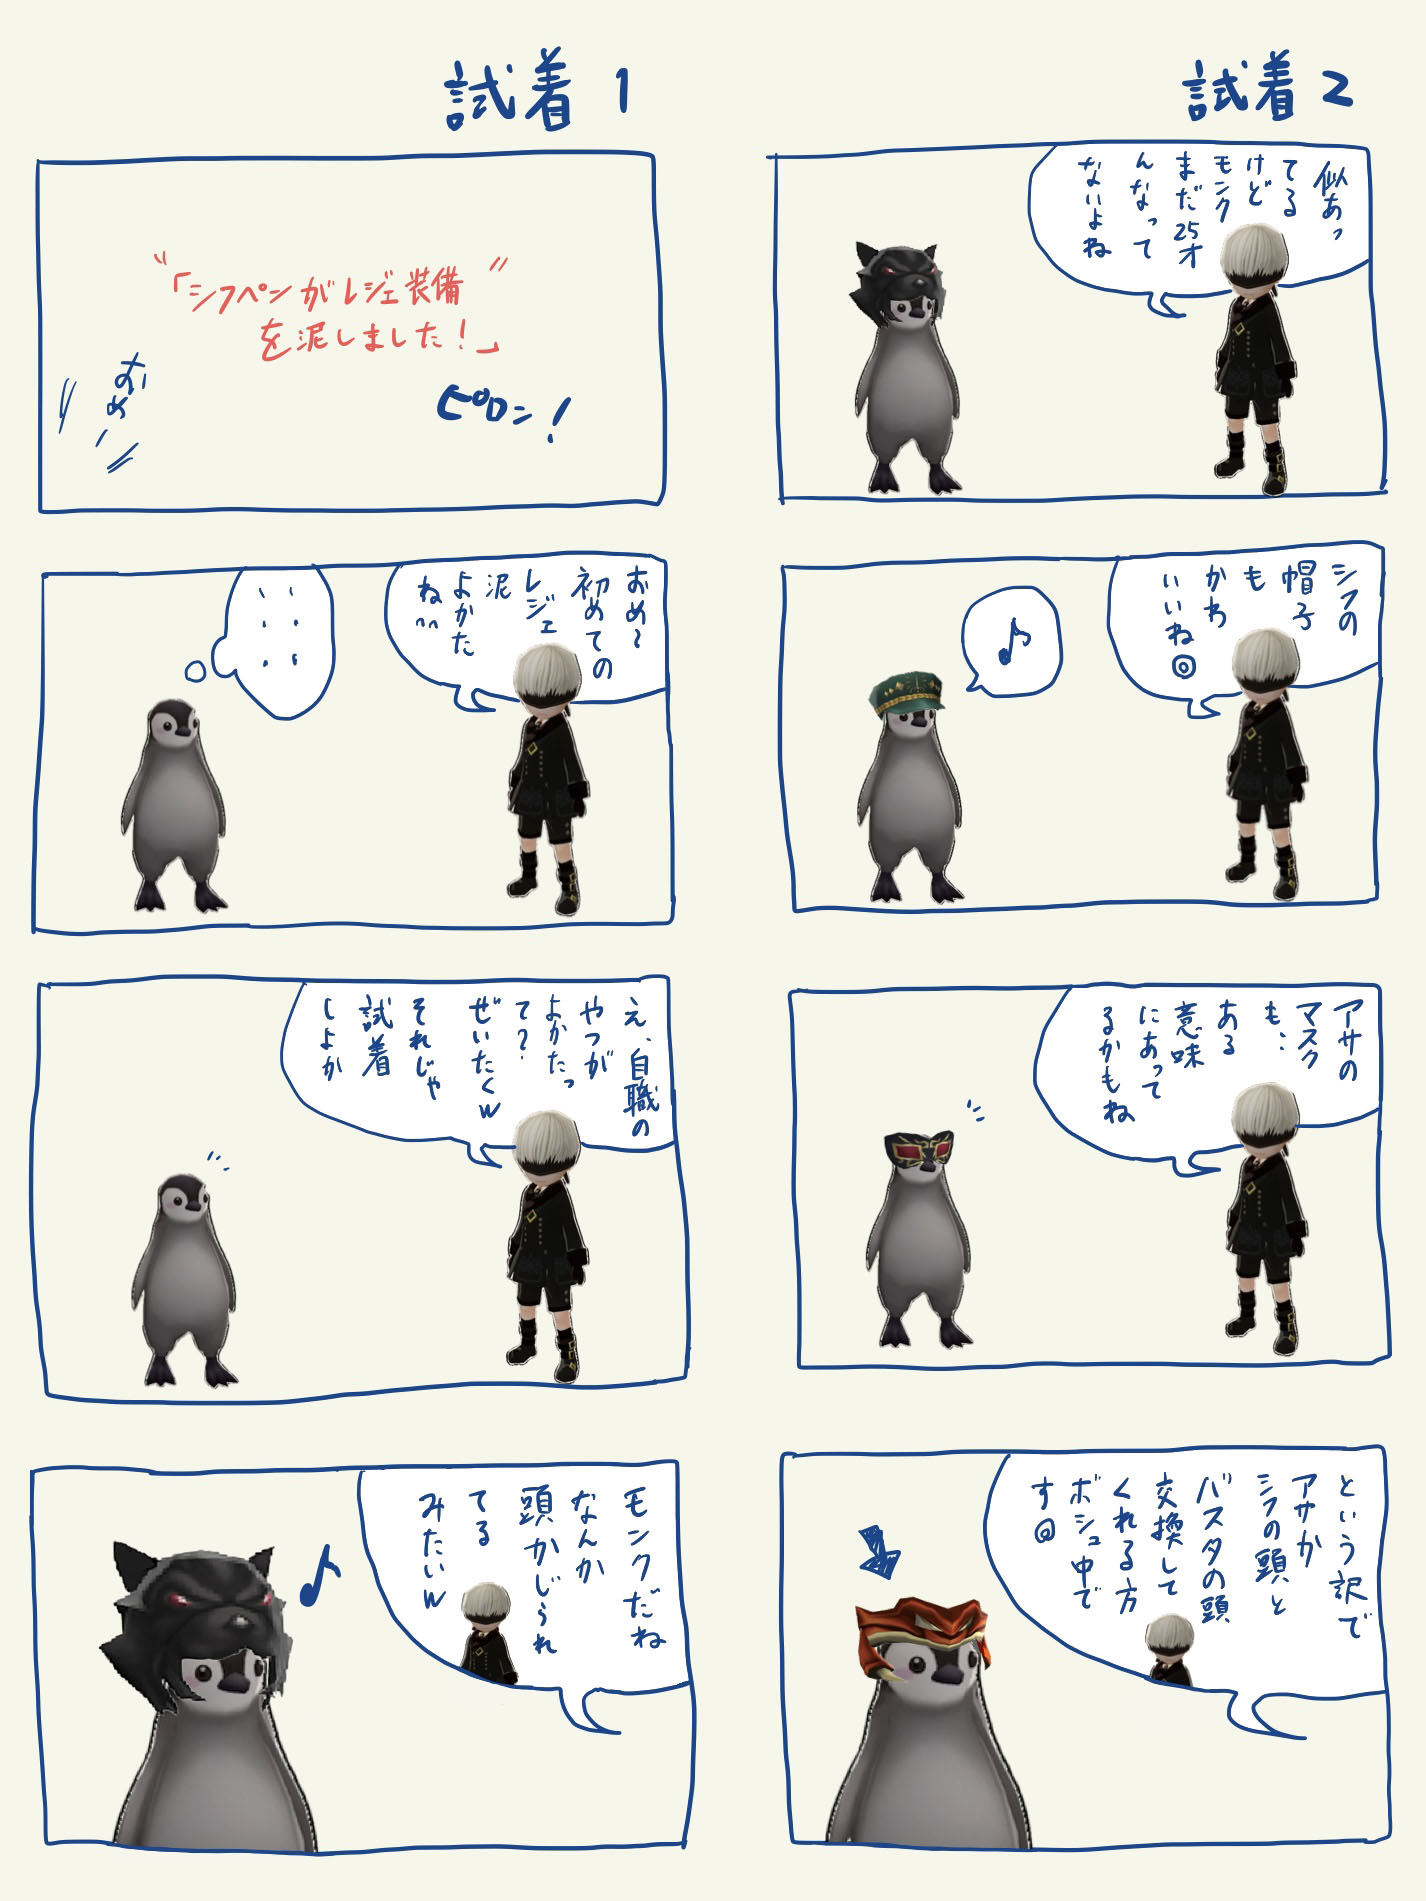 試着 1
"「シフペンがレジェ装備
を泥しました!」"
ピロン!
おめー
おめ~
初めての
レジェ
泥
よかた
ね^^
え、自職の
やつが
よかたっ
て?
ぜいたくw
それじゃ
試着
しよか
モンクだね
なんか
頭かじられ
てる
みたいw
試着 2
似あっ
てる
けど
モンク
まだ25才
んなって
ないよね
シフの
帽子
も
かわ
いいね◎
アサの
マスク
も..
ある
意味
にあって
るかもね
という訳で
アサか
シフの頭と
バスタの頭
交換して
くれる方
ボシュ中で
す◎